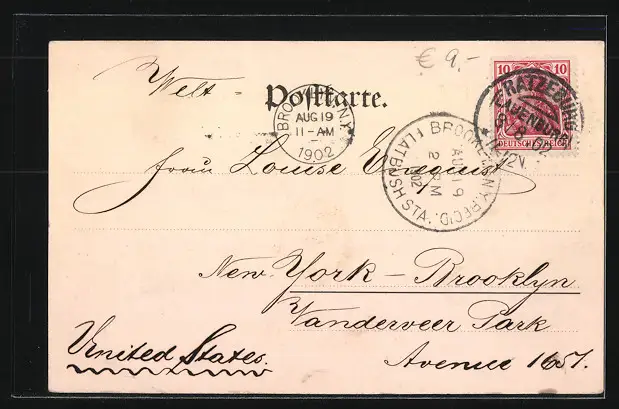 € 9.-
10 10
DEUTSCHES REICH
RATZEBURG
(LAUENBURG)
8 8 02
11-12V.
Welt-Postkarte.
BROOKLYN, N.Y.
AUG 19
11-AM
1902
BROOKLYN, N.Y. REC'D.
AUG 19
2 PM
1902
FLATBUSH STA.
Frau Louise
New York - Brooklyn
Vanderveer Park
United States. Avenue 1651.